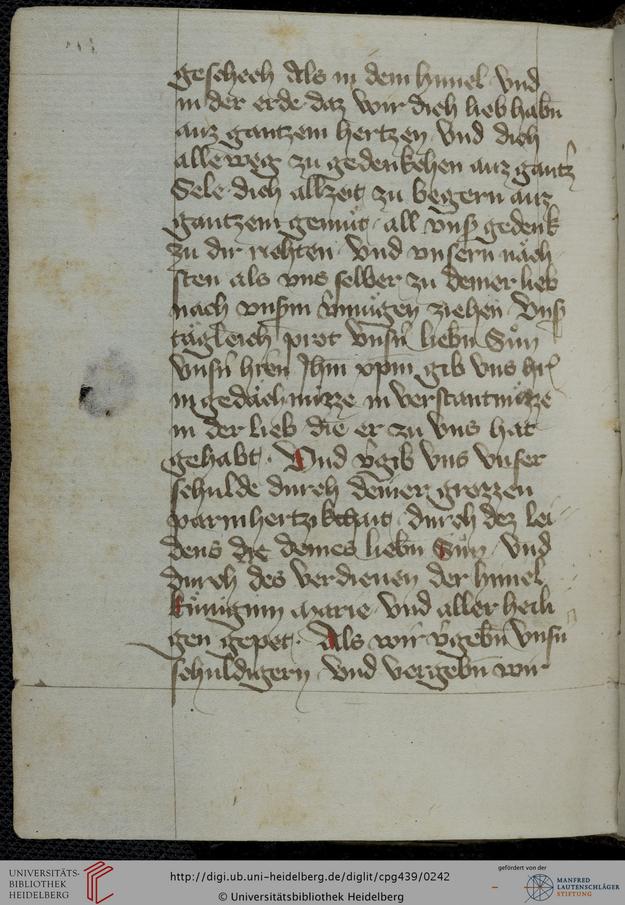 gescheeh Als in dem himel vnd
in der erde daz wir dich lieb habn̄
auz gantzem hertzen vnd dich
alleweg zu gedenkchen auz gantz̉
Sele dich allzeit zu begern auz
gantzem gemüt all vnß gedenk
zu dir richten vnd vnsern näch
sten als vns selber zu deiner lieb
nach vnßm v̉mügen ziehen Vnß
tägleich prot vnsn̉ liebn̄ Sůn
vnsn̉ hr̄en Jhm̄ xpm̄ gib vns
in gedächtnüzze in verstantnüzze
in der lieb die er zu vns hat
gehabt. Vnd v̉gib vns vnser
schulde durch deiner grozzen
parmhertzikchait durch dez lei
dens deines liebn̄ Sůn vnd
durch des verdienen der himel
künigin Marie vnd aller heili
gen gepet. Als wir v̉gebn̄ vnsn̉
schuldigern vnd vergebn̄ wir
UNIVERSITÄTS-
BIBLIOTHEK
HEIDELBERG
http://digi.ub.uni-heidelberg.de/diglit/cpg439/0242
© Universitätsbibliothek Heidelberg
gefördert von der
MANFRED
LAUTENSCHLÄGER
STIFTUNG